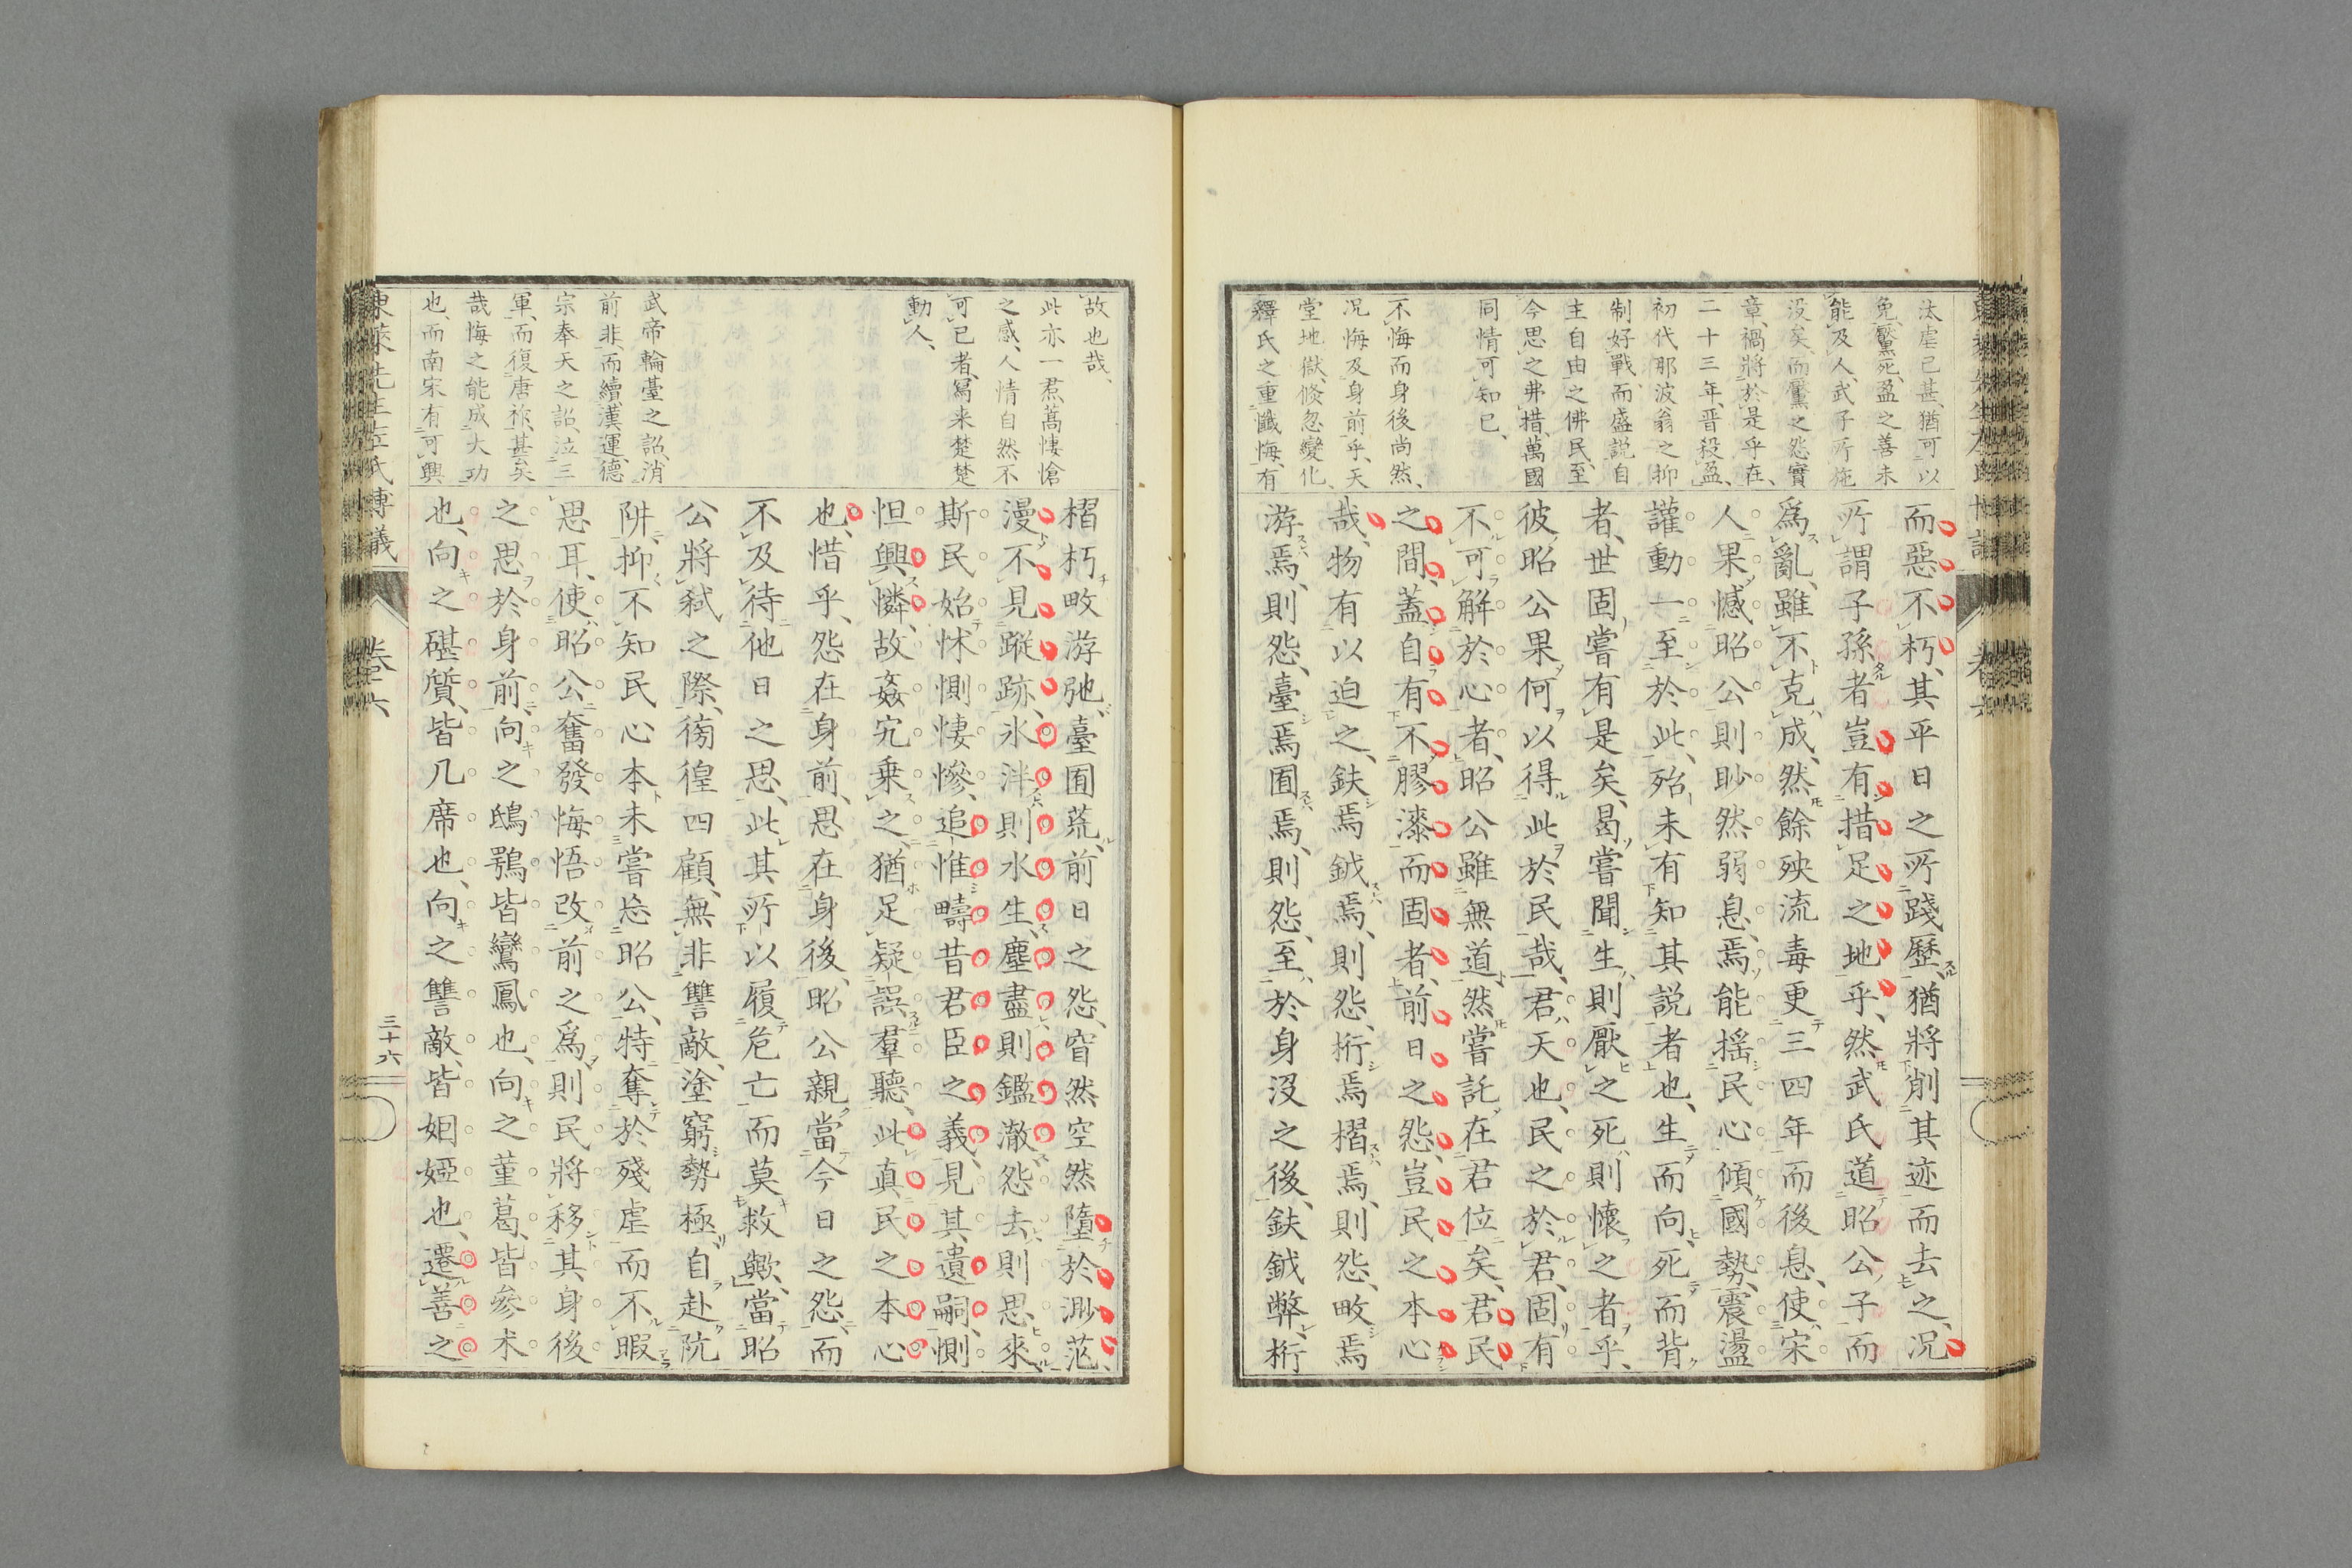 汰虐已甚、猶可以
免、黶死、盈之善未
能及人、武子所施
没矣、而黶之怨實
章、禍將於是乎在、
二十三年、晋殺盈、
初代那波翁之抑
制好戰、而盛説自
主自由之佛民、至
今思之弗措、萬國
同情可知已、
不悔而身後尚然、
况悔及身前乎、天
堂地獄、倐忽變化、
釋氏之重懺悔、有
而惡不朽、其平日之所踐歷、猶將削其迹而去之、况
所謂子孫者豈有措足之地乎、然武氏道昭公子而
爲亂、雖不克成、然餘殃流毒更三四年而後息、使宋
人果憾昭公則眇然弱息、焉能揺民心傾國勢、震盪
讙動一至於此、殆未有知其説者也、生而向、死而背
者、世固嘗有是矣、曷嘗聞生則厭之死則懷之者乎、
彼昭公果何以得此於民哉、君天也、民之於君、固有
不可解於心者、昭公雖無道、然嘗託在君位矣、君民
之間、蓋自有不膠漆而固者、前日之怨、豈民之本心
哉、物有以迫之、鈇焉鉞焉、則怨、桁焉楷焉、則怨、畋焉
游焉、則怨、臺焉囿焉、則怨、至於身没之後、鈇鉞弊、桁
東萊先生左氏博議
卷六
故也哉、
此亦一君、蒿悽愴
之感、人情自然不
可已者、寫来楚楚
動人、
武帝輪臺之詔、消
前非、而續漢運、德
宗奉天之詔、泣三
軍、而復唐祚、甚矣
哉悔之能成大功
也、而南宋有可興
槢朽畋游弛、臺囿荒、前日之怨、窅然空然墮於渺茫、
漫不見蹤跡、氷泮則水生、塵盡則鑑澈、怨去則思來、
斯民始怵惻悽慘、追惟疇昔君臣之義、見其遺嗣、惻
怛興憐、故姦宄乗之、猶足疑誤羣聽、此真民之本心
也、惜乎、怨在身前、思在身後、昭公親當今日之怨、而
不及待他日之思、此其所以履危亡而莫救歟、當昭
公將弑之際、徬徨四顧、無非讐敵、塗窮勢極、自赴阬
阱、抑不知民心本未嘗忘昭公、特奪於殘虐而不暇
思耳、使昭公奮發悔悟改前之爲、則民將移其身後
之思於身前、向之鴟鴞皆鸞鳳也、向之菫葛、皆參朮
也、向之碪質、皆几席也、向之讐敵、皆姻婭也、遷善之
東萊先生左氏博議
卷六
三十六